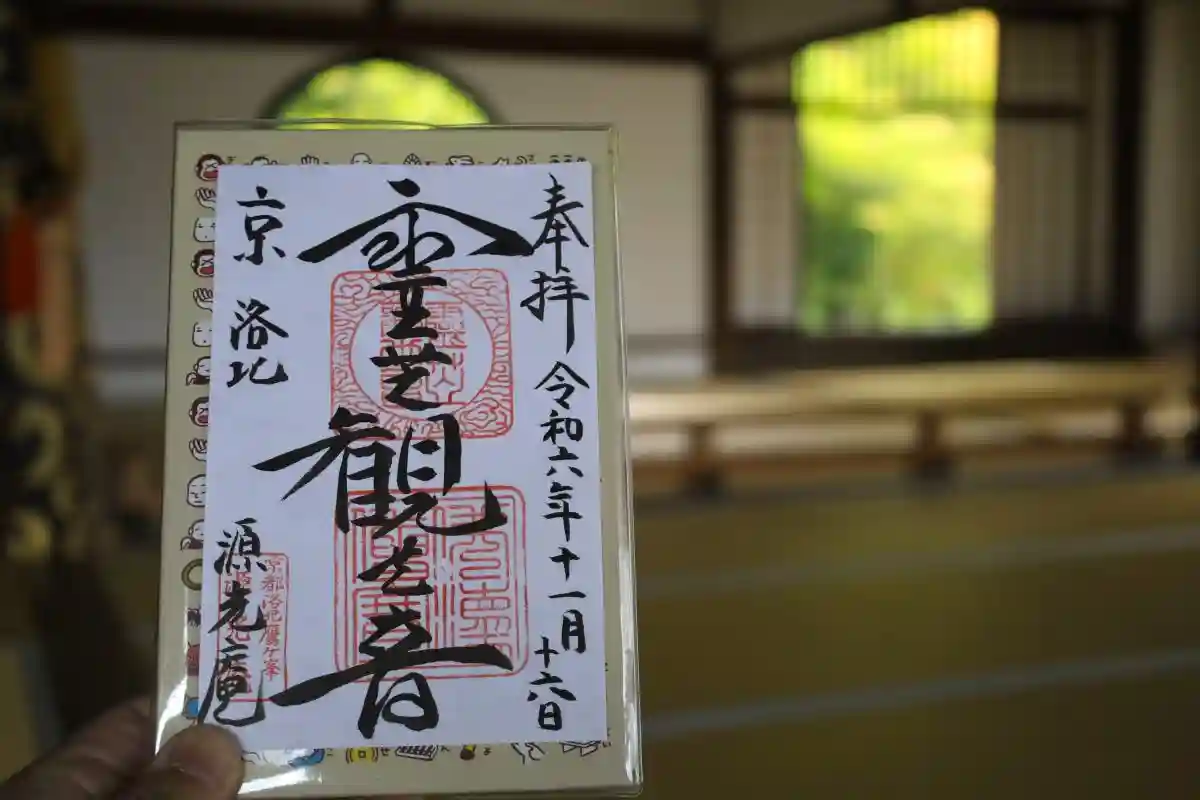 奉拝 令和六年十一月十六日
霊芝観世音
京 洛北 源光庵
京都洛北鷹ケ峯